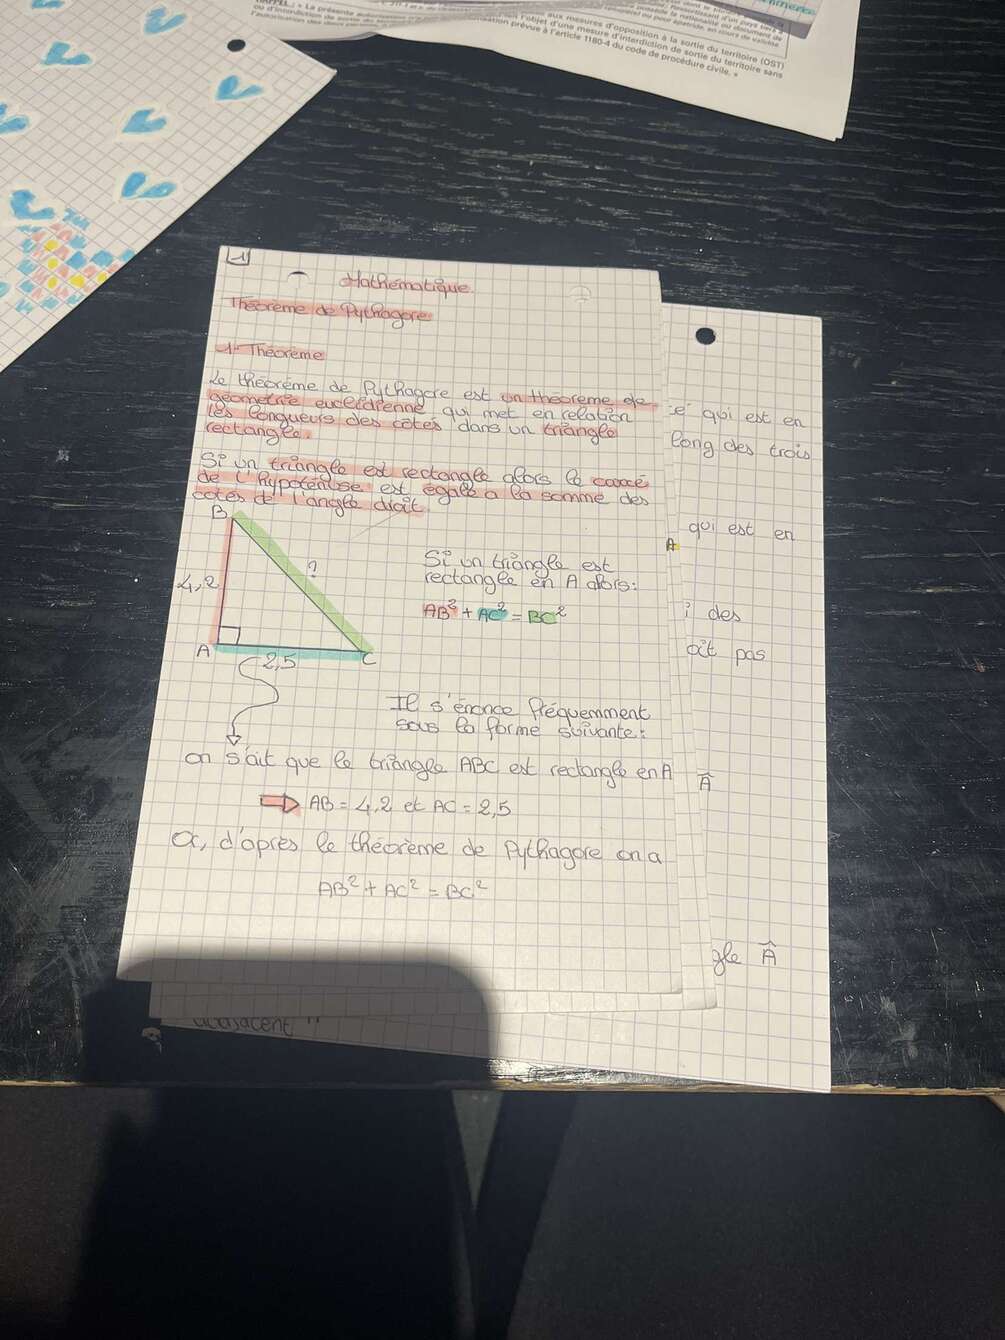 RAPPEL : « La présente
ou d'interdiction de sortie du
l'autorisation des deux
aux mesures d'opposition à la sortie du territoire (OST)
l'objet d'une mesure d'interdiction de sortie du territoire sans
prévue à l'article 1180-4 du code de procédure civile. »
1
Mathématique.
Théorème de Pythagore
1- Théorème
Le théorème de Pythagore est un théorème de
géométrie euclidienne qui met en relation
les longueurs des côtés dans un triangle
rectangle.
Si un triangle est rectangle alors le carré
de l'hypoténuse est égale a la somme des
cotés de l'angle droit.
B
4,2
?
A
2,5
C
Si un triangle est
rectangle en A alors:
AB² + AC² = BC²
Il s'énonce fréquemment
sous la forme suivante:
on s'ait que le triangle ABC est rectangle en A
⇒ AB = 4,2 et AC = 2,5
Or, d'après le théorème de Pythagore on a
AB² + AC² = BC²
qui est en
long des trois
qui est en
A
des
pas
Â
gle Â
adjacent "